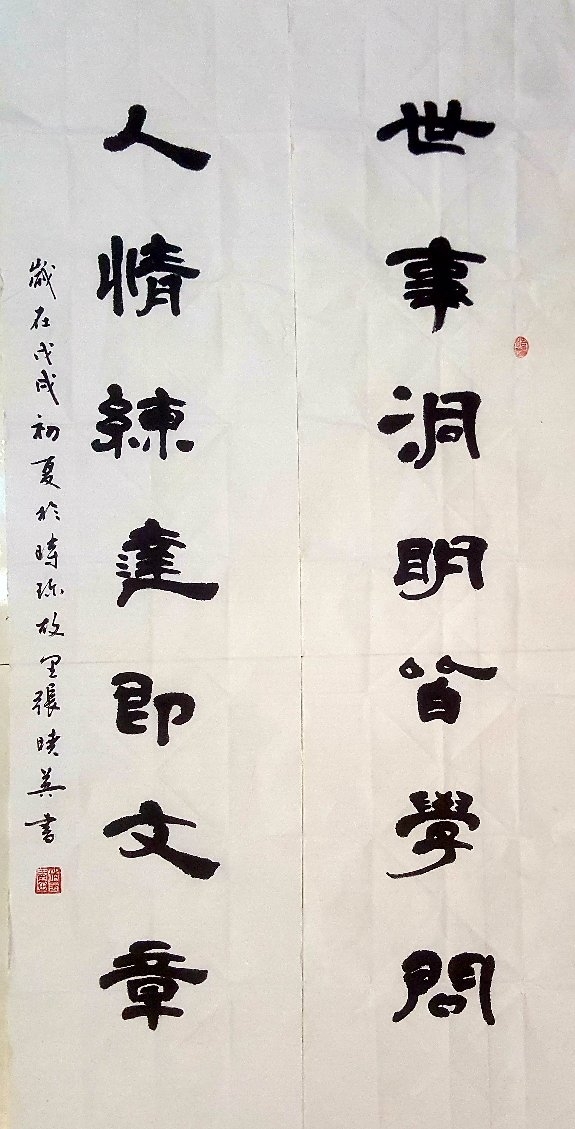 世事洞明皆學問
人情練達即文章
歲在戊戌初夏於時珍故里張曉英書